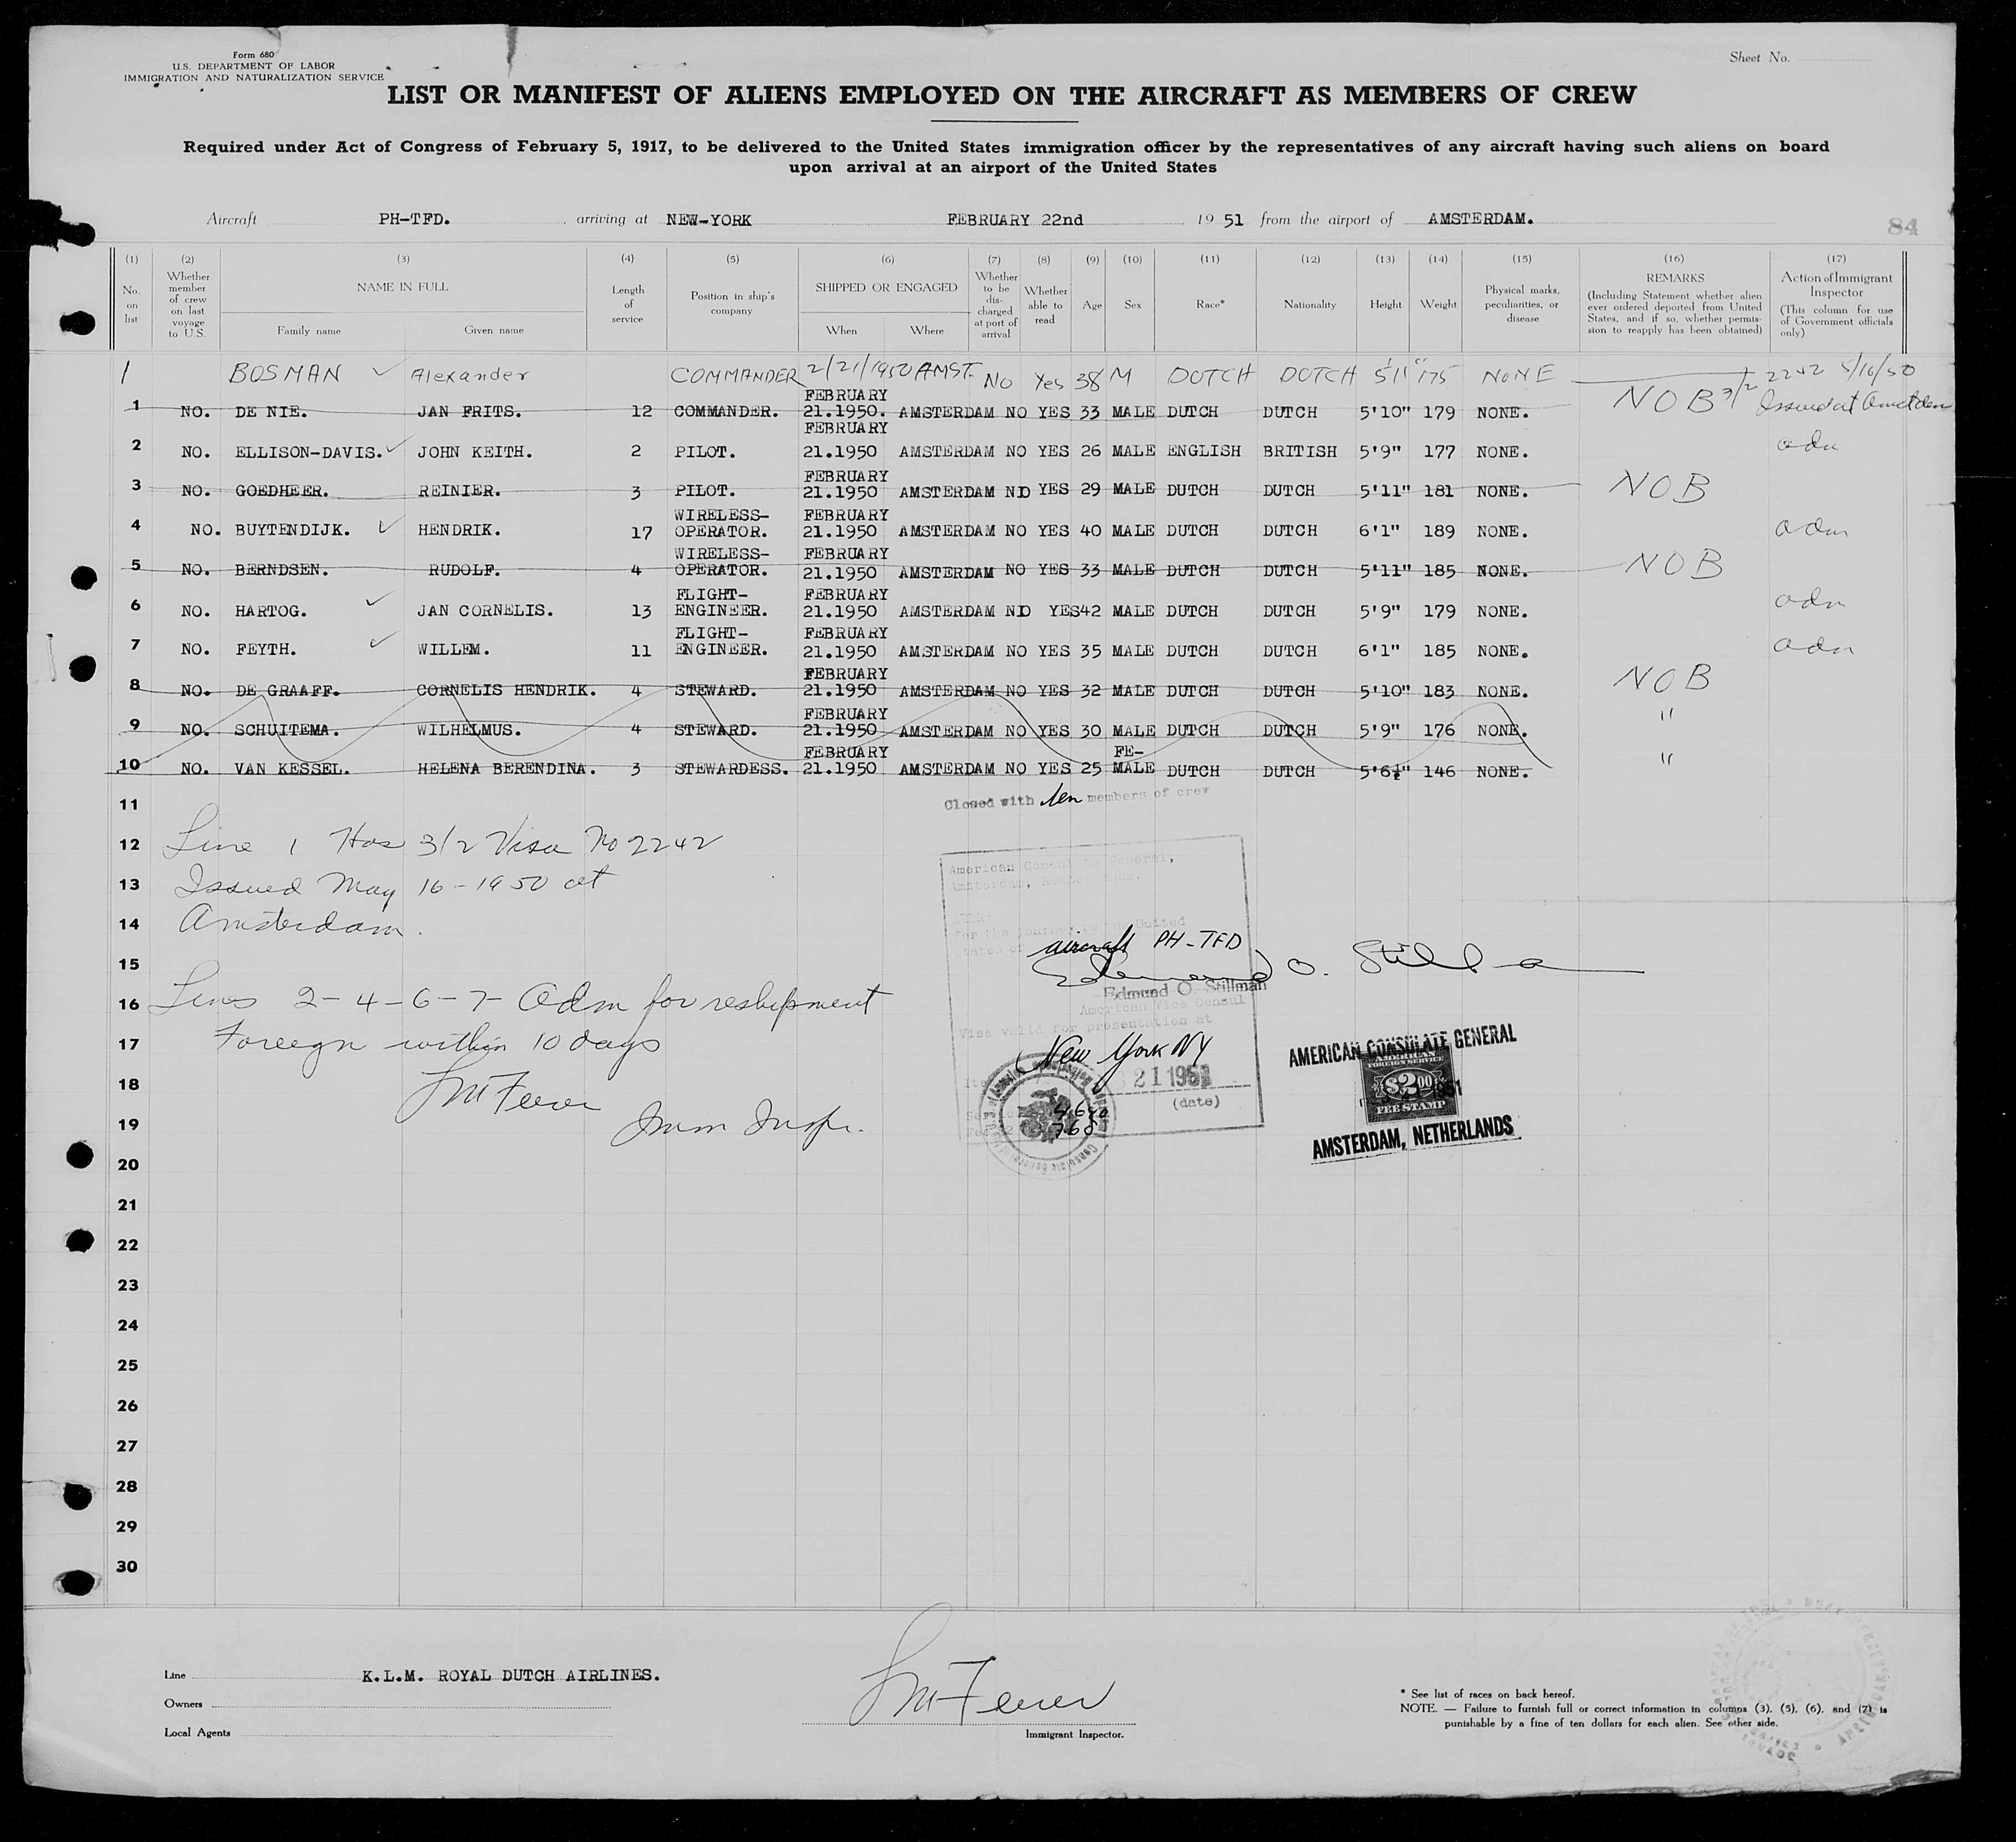 Form 680
U.S. DEPARTMENT OF LABOR
IMMIGRATION AND NATURALIZATION SERVICE
Sheet No.
LIST OR MANIFEST OF ALIENS EMPLOYED ON THE AIRCRAFT AS MEMBERS OF CREW
Required under Act of Congress of February 5, 1917, to be delivered to the United States immigration officer by the representatives of any aircraft having such aliens on board
upon arrival at an airport of the United States
Aircraft PH-TFD. arriving at NEW-YORK FEBRUARY 22nd 19 51 from the airport of AMSTERDAM.
84
(1) No. on list
(2) Whether member of crew on last voyage to U.S.
(3) NAME IN FULL Family name Given name
(4) Length of service
(5) Position in ship's company
(6) SHIPPED OR ENGAGED When Where
(7) Whether to be dis-charged at port of arrival
(8) Whether able to read
(9) Age
(10) Sex
(11) Race*
(12) Nationality
(13) Height
(14) Weight
(15) Physical marks, peculiarities, or disease
(16) REMARKS (Including Statement whether alien ever ordered deported from United States, and if so, whether permis-sion to reapply has been obtained)
(17) Action of Immigrant Inspector (This column for use of Government officials only)
1 BOSMAN ✓ Alexander COMMANDER 2/21/1950 AMST. No Yes 38 M DUTCH DUTCH 5'11" 175 NONE 3/2 2242 5/16/50
Issued at Amsterdam
1 NO. DE NIE. JAN FRITS. 12 COMMANDER. FEBRUARY 21.1950. AMSTERDAM NO YES 33 MALE DUTCH DUTCH 5'10" 179 NONE. NOB
2 NO. ELLISON-DAVIS. ✓ JOHN KEITH. 2 PILOT. FEBRUARY 21.1950 AMSTERDAM NO YES 26 MALE ENGLISH BRITISH 5'9" 177 NONE. adm
3 NO. GOEDHEER. REINIER. 3 PILOT. FEBRUARY 21.1950 AMSTERDAM NO YES 29 MALE DUTCH DUTCH 5'11" 181 NONE. NOB
4 NO. BUYTENDIJK. ✓ HENDRIK. 17 WIRELESS-OPERATOR. FEBRUARY 21.1950 AMSTERDAM NO YES 40 MALE DUTCH DUTCH 6'1" 189 NONE. adm
5 NO. BERNDSEN. RUDOLF. 4 WIRELESS-OPERATOR. FEBRUARY 21.1950 AMSTERDAM NO YES 33 MALE DUTCH DUTCH 5'11" 185 NONE. NOB
6 NO. HARTOG. ✓ JAN CORNELIS. 13 FLIGHT-ENGINEER. FEBRUARY 21.1950 AMSTERDAM NO YES 42 MALE DUTCH DUTCH 5'9" 179 NONE. adm
7 NO. FEYTH. ✓ WILLEM. 11 FLIGHT-ENGINEER. FEBRUARY 21.1950 AMSTERDAM NO YES 35 MALE DUTCH DUTCH 6'1" 185 NONE. adm
8 NO. DE GRAAFF. CORNELIS HENDRIK. 4 STEWARD. FEBRUARY 21.1950 AMSTERDAM NO YES 32 MALE DUTCH DUTCH 5'10" 183 NONE. NOB
9 NO. SCHUITEMA. WILHELMUS. 4 STEWARD. FEBRUARY 21.1950 AMSTERDAM NO YES 30 MALE DUTCH DUTCH 5'9" 176 NONE. "
10 NO. VAN KESSEL. HELENA BERENDINA. 3 STEWARDESS. FEBRUARY 21.1950 AMSTERDAM NO YES 25 FE-MALE DUTCH DUTCH 5'6½" 146 NONE. "
11
Closed with ten members of crew
12 Line 1 Has 3/2 Visa No 2242
13 Issued May 16-1950 at
14 Amsterdam.
American Consulate General,
Amsterdam, Netherlands.
for the journey to the United
States of aircraft PH-TFD
15
Edmund O. Stillman
Edmund O. Stillman
American Vice Consul
Visa valid for presentation at
New York NY
21 1951
(date)
4640
768
16 Lines 2-4-6-7- Adm for reshipment
17 Foreign within 10 days
18
19 Imm Insp.
AMERICAN CONSULATE GENERAL
AMERICAN
FOREIGN SERVICE
$2.00
FEE STAMP
AMSTERDAM, NETHERLANDS
20
21
22
23
24
25
26
27
28
29
30
Line K.L.M. ROYAL DUTCH AIRLINES.
Owners
Local Agents
Immigrant Inspector.
* See list of races on back hereof.
NOTE. — Failure to furnish full or correct information in columns (3), (5), (6), and (7) is
punishable by a fine of ten dollars for each alien. See other side.